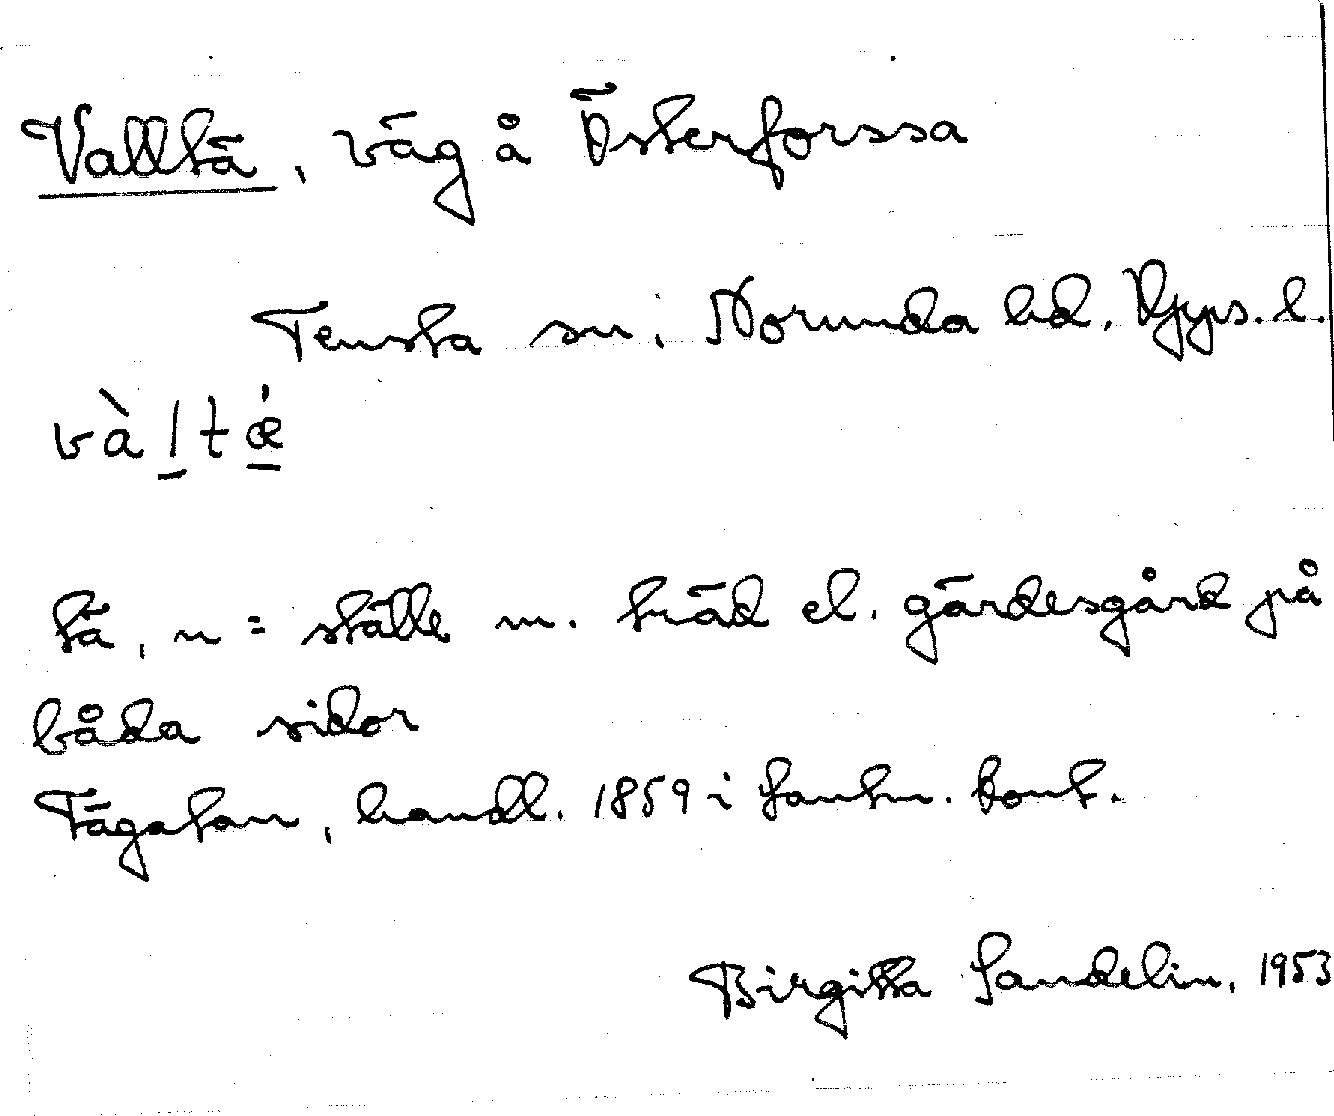 Valltä, väg å Österforssa
Tensta sn, Norunda hd, Upps. l.
vàltǽ
tä, n = ställe m. träd el. gärdesgård på
båda sidor
Tägatan, handl. 1859 i lantm. kont.
Birgitta Sandelin, 1953